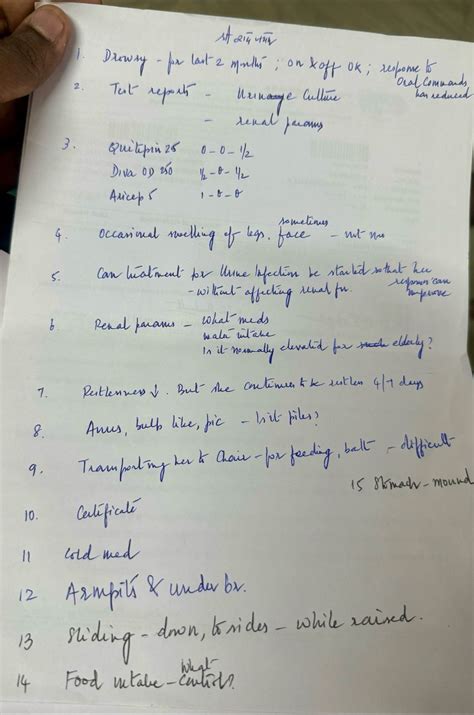 1. Drowsy - for last 2 months ; on & off OK ; response to
Oral Commands
has reduced
2. Test reports - Urinary Culture
- renal params
3. Quitipin 25 0-0-1/2
Diva OD 250 1/2-0-1/2
Aricep 5 1-0-0
4. Occasional swelling of legs, sometimes face - not now
5. Can treatment for Urine Infection be started so that her
responses can
improve
- without affecting renal fn.
6 Renal params - what meds
water intake
Is it normally elevated for elderly?
7. Restlessness ↓. But she continues to be restless 4/7 days
8. Anus, bulb like, pic - list piles?
9. Transporting her to Chair - for feeding, bath - difficult
15 Stomach - mound
10. Certificate
11 Cold med
12 Armpits & under br.
13 Sliding - down, to sides - while raised.
14 Food intake - What Control?